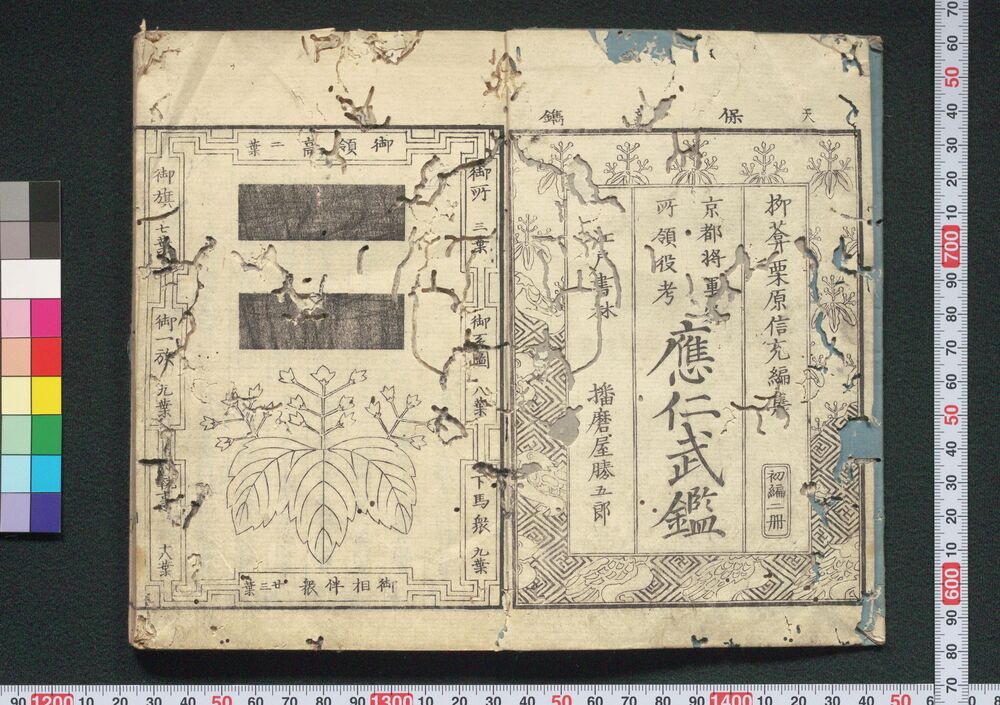 天保　鐫
柳菴栗原信充編集
初編二冊
京都将軍
所領役考
應仁武鑑
江戸書林
播磨屋勝五郎
御領高 二葉
御所 三葉
御系圖 八葉
下馬衆 九葉
御旗 七葉
御一族 九葉
十六葉
御相伴衆 廿三葉
90 1200 10 20 30 40 50 60 70 80 90 1300 10 20 30 40 50 60 70 80 90 1400 10 20 30 40 50
70 60 50 40 30 20 10 700 90 80 70 60 50 40 30 20 10 600 90 80 70